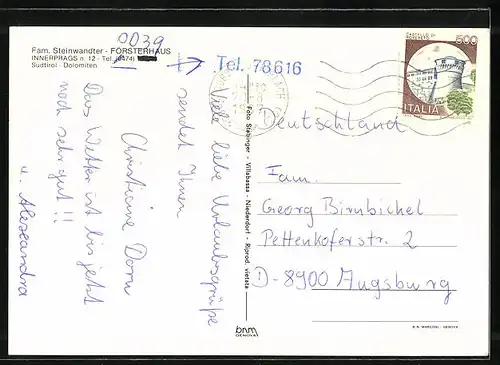 Fam. Steinwandter - FORSTERHAUS
INNERPRAGS n. 12 - Tel. (0474)
Südtirol - Dolomiten
0039
Tel. 78616
Viele liebe Urlaubsgrüße
sendet Ihnen
Christiane Dorn
Das Wetter ist bis jetzt
noch sehr gut!!
u. Alexandra
Foto Siebinger - Villabassa - Niederdorf - Riprod. vietata
bnm
GENOVA
500
CASTELLO DI
ROVERETO
ITALIA
Deutschland
Fam.
Georg Birnbichel
Pettenkoferstr. 2
D-8900 Augsburg